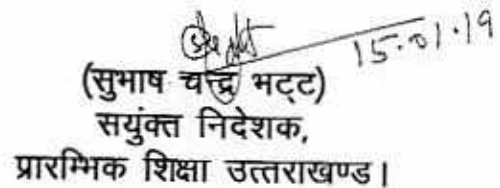 15.01.19
(सुभाष चन्द्र भट्ट)
सयुंक्त निदेशक,
प्रारम्भिक शिक्षा उत्तराखण्ड।